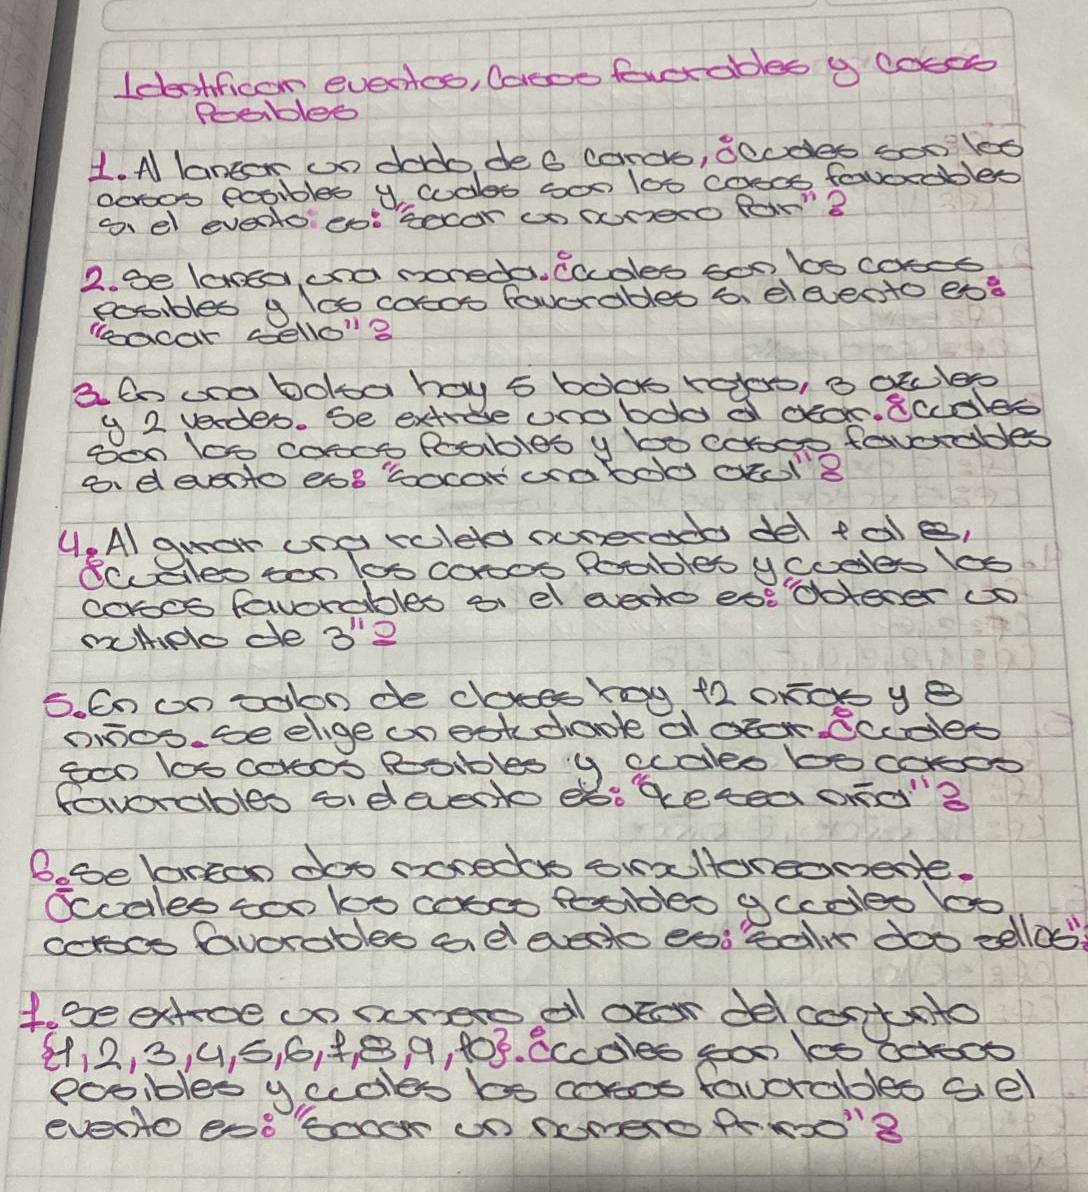 Identifican eventos, Casos favorables y casos
Posibles
1. Al lanzar un dado de 6 caras, ¿cuales son los
casos posibles y cuales son los casos favorables
si el evento es: "sacar un numero Par"?
2. Se lanza una moneda. ¿cuales son los casos
posibles y los casos favorables si el evento es:
"sacar sello"?
3. En una bolsa hay 5 bolas rojas, 3 azules
y 2 verdes. Se extrae una bola al azar. ¿cuales
son los casos Posibles y los casos favorables
si el evento es: "sacar una bola azul"?
4. Al girar una ruleta numerada del 1 al 8,
¿cuales son los casos Posibles y cuales los
casos favorables si el evento es: "obtener un
multiplo de 3"?
5. En un salon de clases hay 12 niñas y 8
niños. se elige un estudiante al azar. ¿cuales
son los casos Posibles y cuales los casos
favorables si el evento es: "que sea niña"?
6. Se lanzan dos monedas simultaneamente.
¿cuales son los casos Posibles y cuales los
casos favorables si el evento es: "salir dos sellos"?
7. Se extrae un numero al azar del conjunto
{1,2,3,4,5,6,7,8,9,10}. ¿cuales son los casos
posibles y cuales los casos favorables si el
evento es: "sacar un numero Primo"?